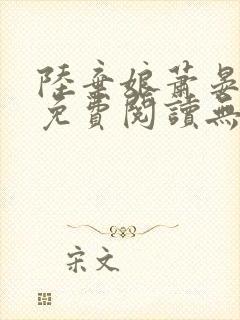 陸棄娘蕭晏
免費閱讀無
宋文